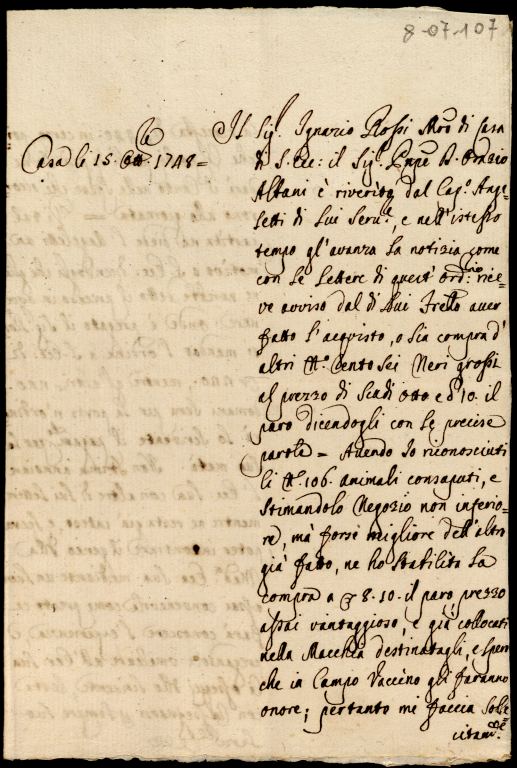 8-07-107
Casa li 15. Ott.bre 1748=
Il Sig.r Ignazio Rossi Mro di Casa
di S. Ecc: il Sig.r Pnpe D. Orazio
Albani è riverito dal Cap.o Ange=
letti di Lui Serv.e, e nell'istesso
tempo gl'avanza La notizia, come
con Le Lettere di quest' Ord:rio rice=
ve avviso dal di Lui Frello aver
fatto L'acquisto, o sia compra d'
altri N.o Cento Sei Neri grossi
al prezzo di Scudi Otto e d 10. il
paro dicendogli con Le precise
parole = Avendo Io riconosciuti
li N.o 106. animali consaputi, e
Stimandolo Negozio non inferio=
re, mà forsi migliore dell'altro
già fatto, ne ho Stabilita La
compra a 8.10. il paro prezzo
assai vantaggioso, e già collocati
nella Macchia destinatagli, e spero
che in Campo Vaccino gli faranno
onore; pertanto mi faccia Solle=
citam.te